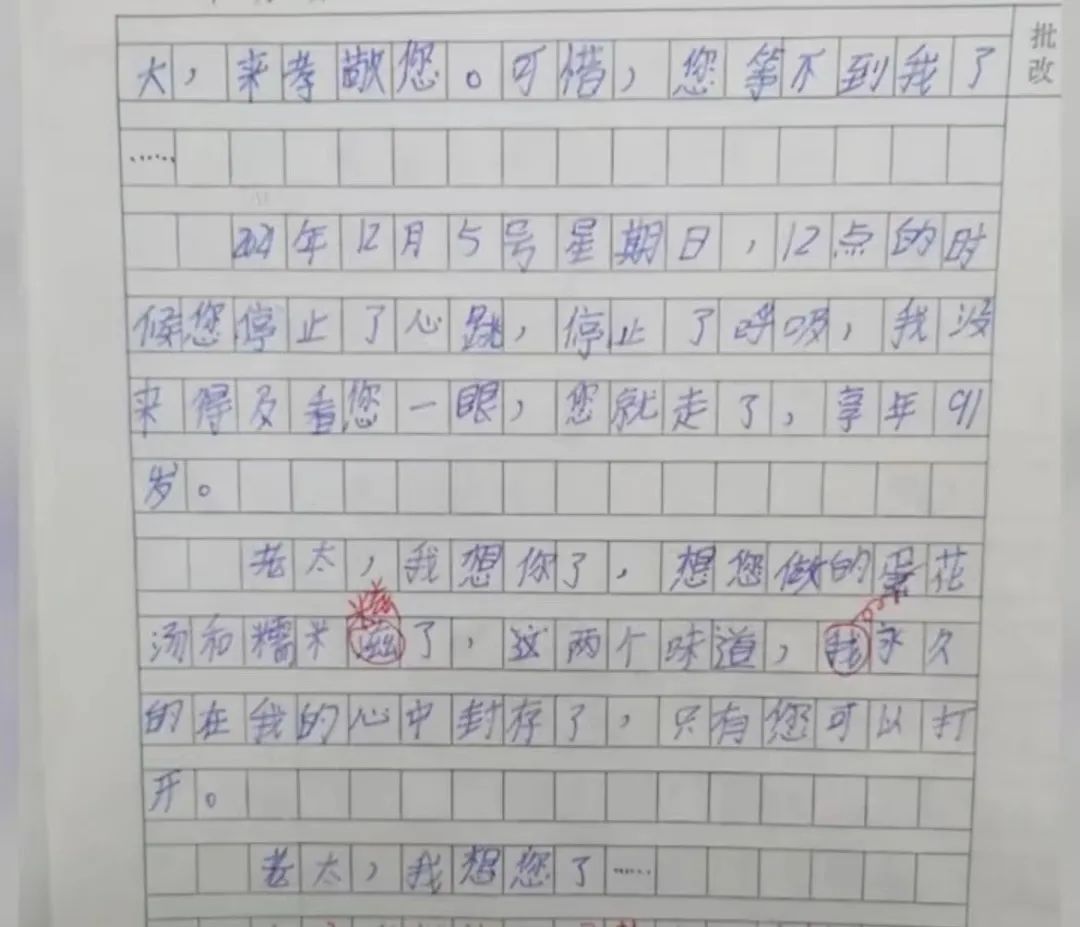 批改
大，来孝敬您。可惜，您等不到我了
……
2021年12月5号星期日，12点的时
候您停止了心跳，停止了呼吸，我没
来得及看您一眼，您就走了，享年91
岁。
老太，我想你了，想您做的蛋花
糍
汤和糯米滋了，这两个味道，我永久
的在我的心中封存了，只有您可以打
开。
老太，我想您了……